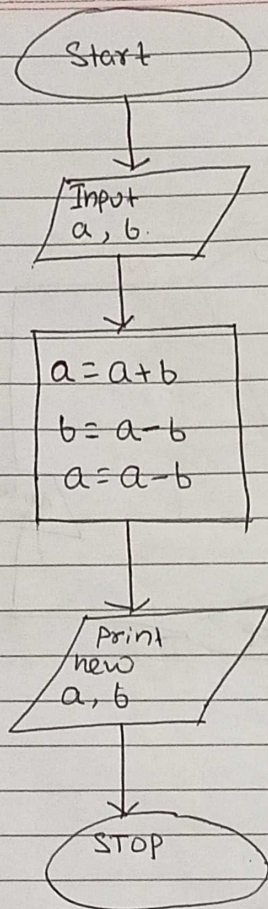 Start
Input
a, b.
a = a+b
b = a-b
a = a-b
print
new
a, b
STOP